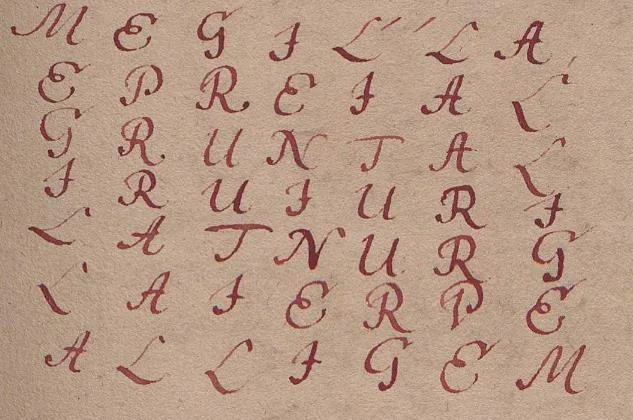 M E G I L L A
E P R E I A L
G R U N T A L
I R U I U R I
L A T N U R G
L A I E R P E
A L L I G E M